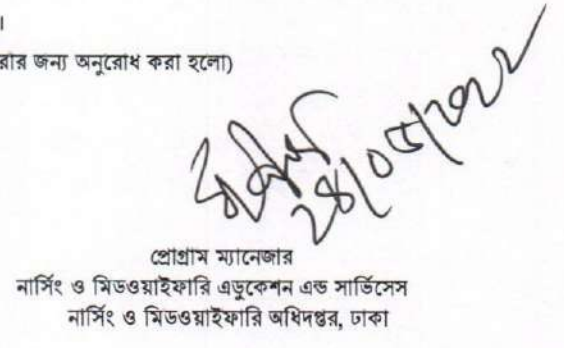 ।
রার জন্য অনুরোধ করা হলো)
২৪/০৫/২০২২
প্রোগ্রাম ম্যানেজার
নার্সিং ও মিডওয়াইফারি এডুকেশন এন্ড সার্ভিসেস
নার্সিং ও মিডওয়াইফারি অধিদপ্তর, ঢাকা